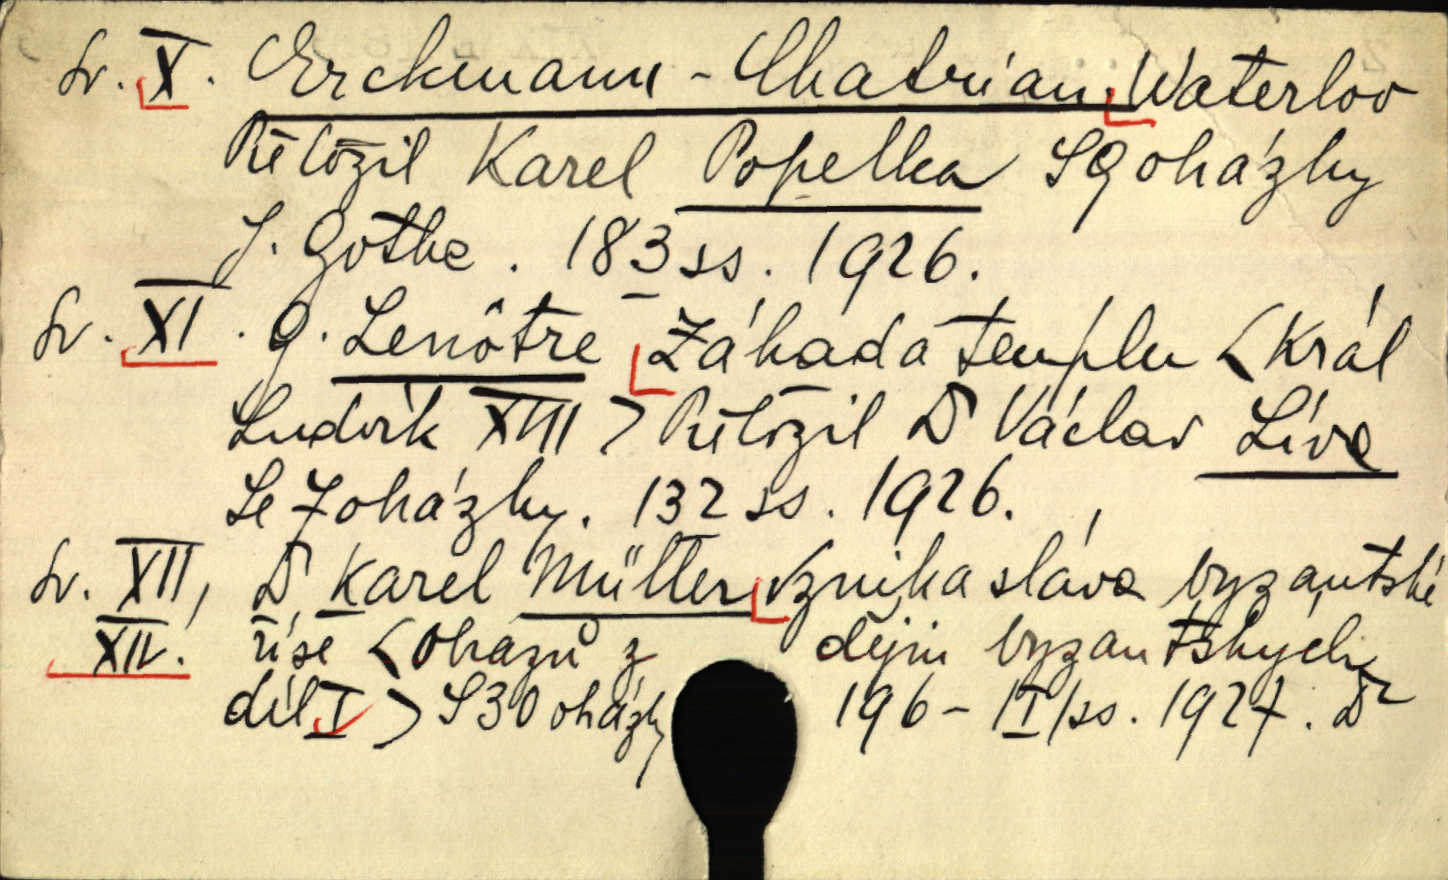 Sv. X. Erckmann - Chatrian, Waterloo
Přeložil Karel Popelka S 9 obrázky
J. Gothe. 183 ss. 1926.
Sv. XI. G. Lenôtre Záhada templu (Král
Ludvík XVII) Přeložil Dr Václav Líva
Se 7 obrázky. 132 ss. 1926.
Sv. XII, Dr Karel Müller Vznik a sláva byzantské
XII. říše (Obrazů z dějin byzantských
díl I) S 30 obrázky 196 - |I| ss. 1927. Dr